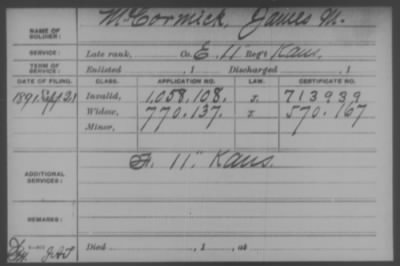 NAME OF SOLDIER: McCormick, James M.
SERVICE: Late rank, Co. E. 11 Reg't Kans.
TERM OF SERVICE: Enlisted , 1 Discharged , 1
DATE OF FILING. CLASS. APPLICATION NO. LAW. CERTIFICATE NO.
1891 Sept 21 Invalid, 1,058,108. J. 713939
Widow, 770.137. J. 570.167
Minor,
ADDITIONAL SERVICES: F. 11" Kans.
REMARKS:
Died , 1 , at